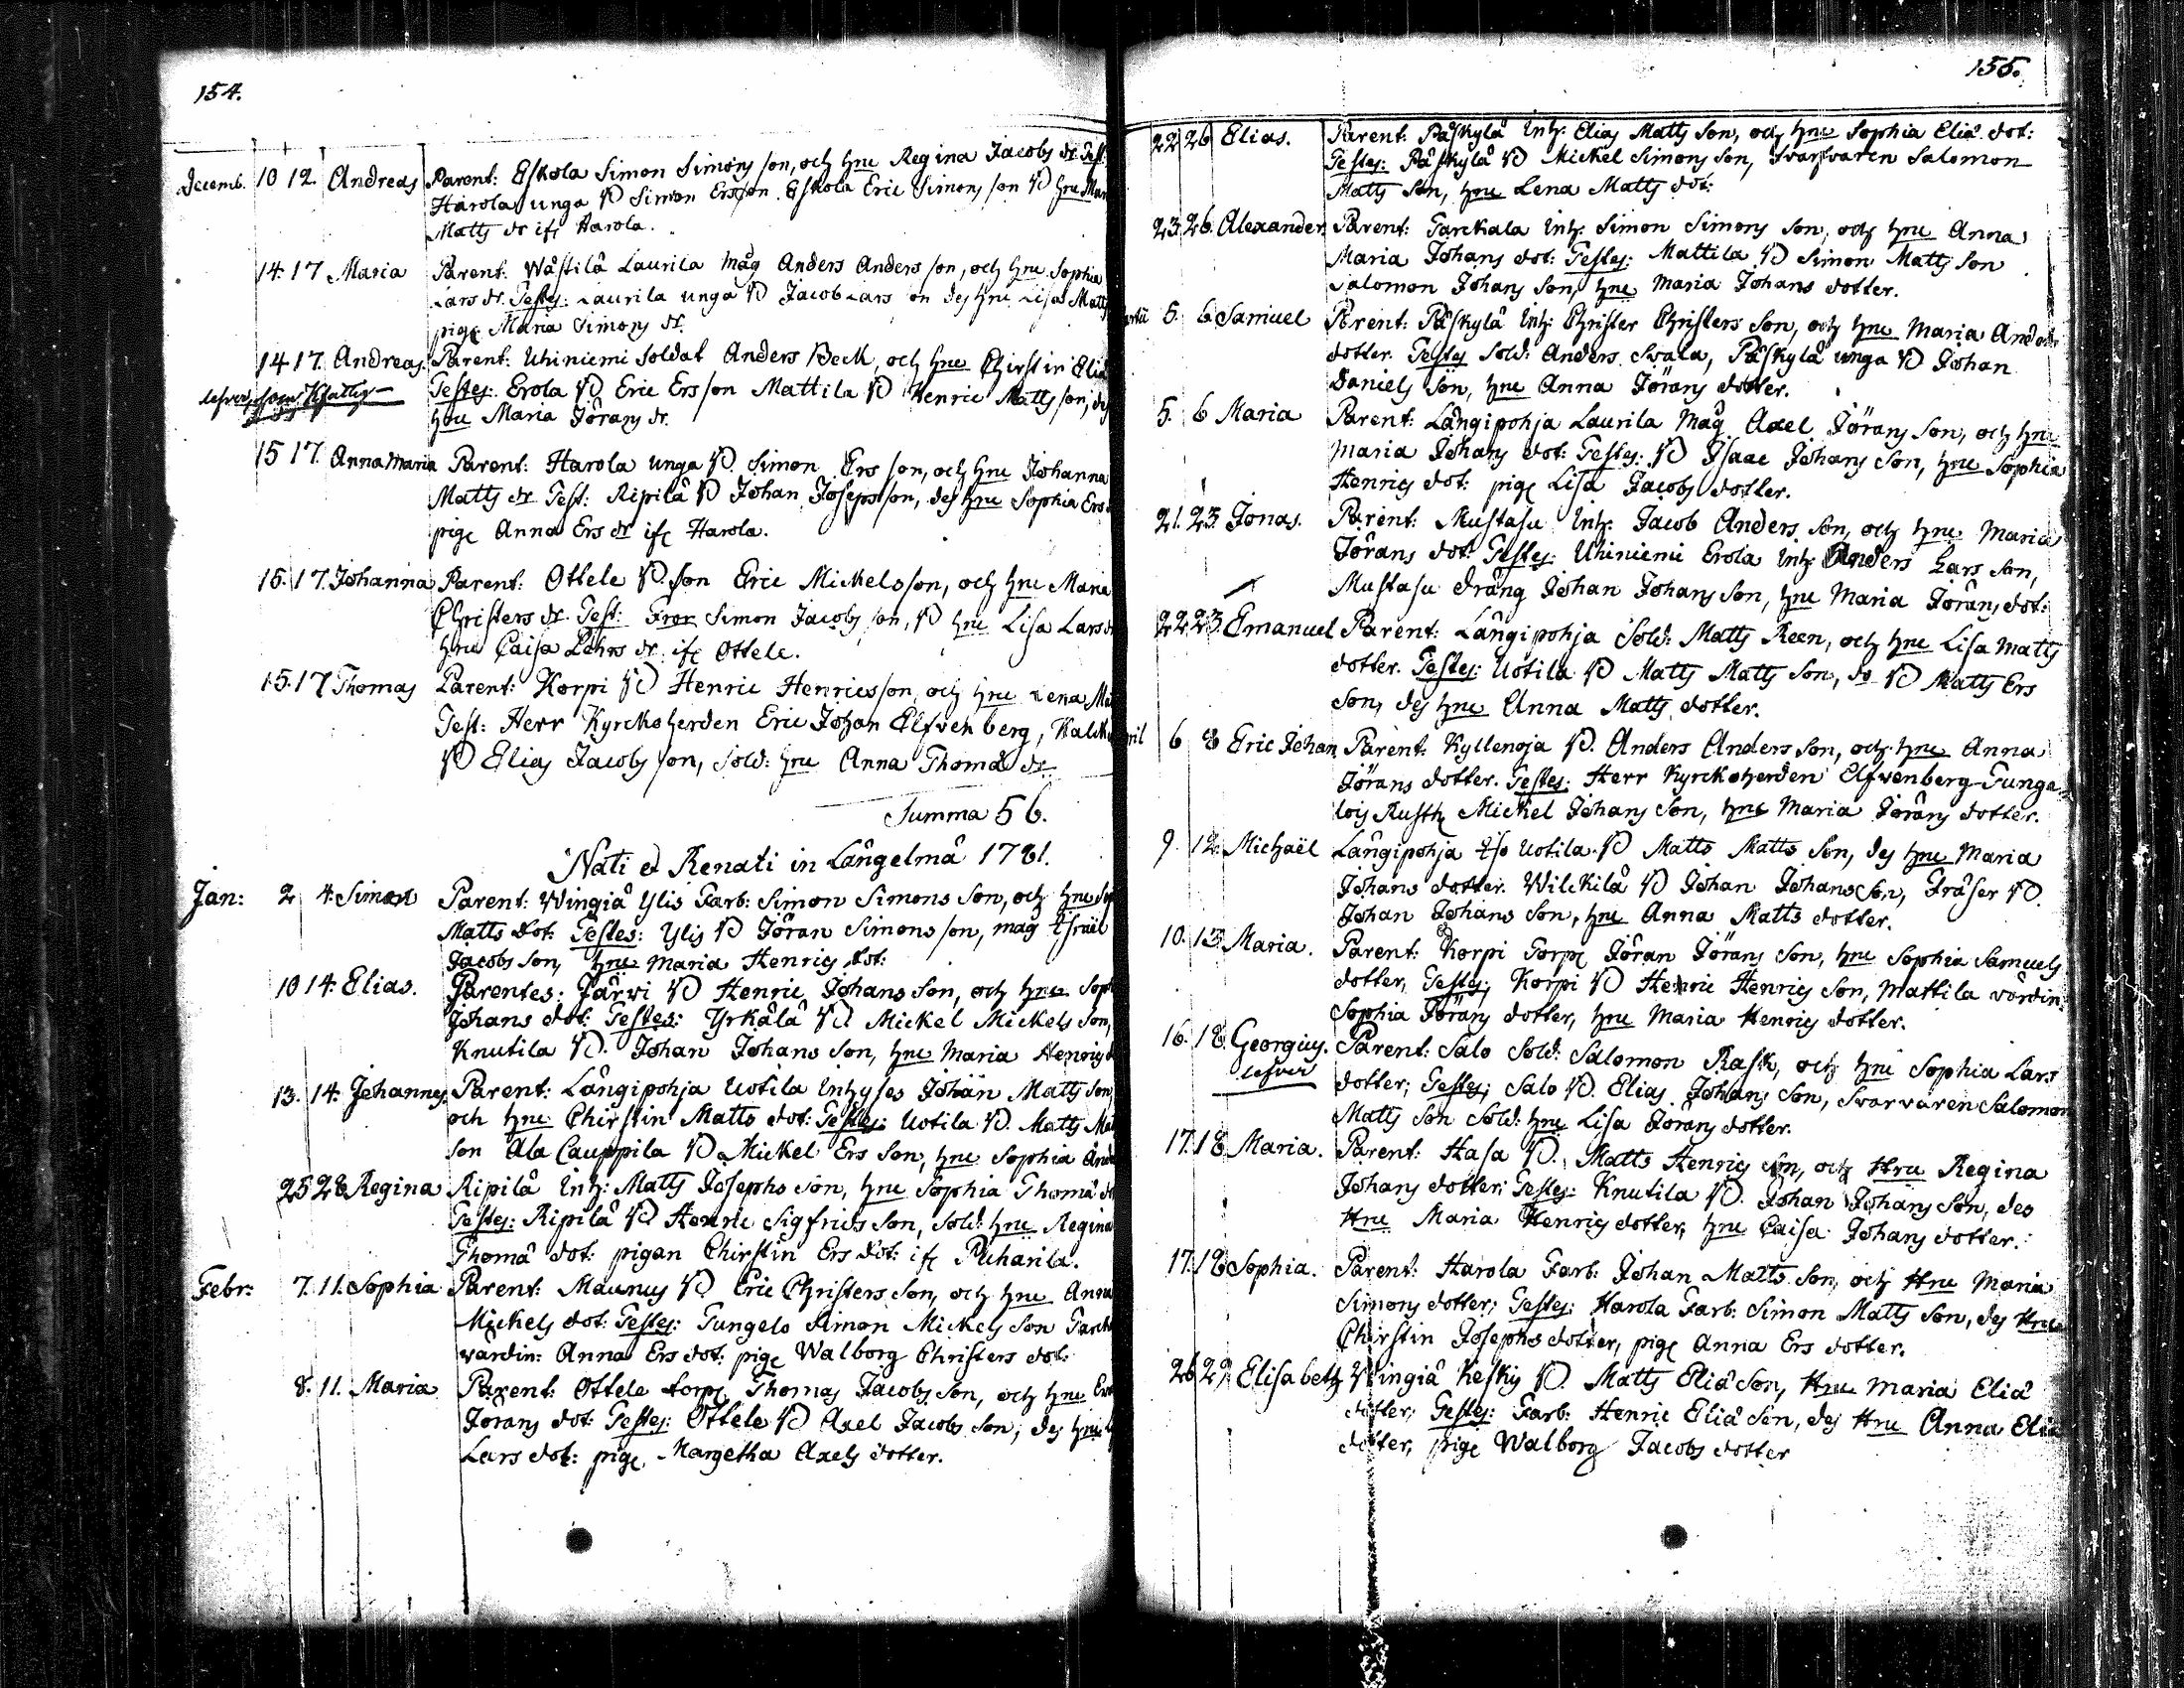 154.
Decemb. 10 12. Andreas Parent: Eskola Simon Simons son, och hru Regina Jacobs dr Test:
Harola unga VD Simon Ersson. Eskola Eric Simons son VD hru Mar
Matts dr ifr Harola.
14. 17 Maria Parent: Wästilä Laurila måg Anders Anders son, och hru Sophia
Lars dr. Testes: Laurila unga VD Jacob Lars son des hru Lisa Matts
pig. Maria Simons dr.
14 17. Andreas. Parent: Uhiniemi Soldat Anders Beck, och hru Chirstin Eliæ
Testes: Erola VD Eric Ers son Mattila VD Henric Matts son, des
hru Maria Jörans dr.
15 17. Anna Maria Parent: Harola unga VD. Simon Ers son, och hru Johanna
Matts dr Test: Ripilä VD Johan Josephsson, des hru Sophia Ers d
pig. Anna Ers dr ifr Harola.
15. 17. Johanna Parent: Ottele VD. son Eric Mickelsson, och hru Maria
Christers dr. Test: Simon Jacobs son, VD hru Lisa Lars d
hru Caisa Lohrs dr. ifr Ottele.
15. 17 Thomas Parent: Korpi VD Henric Henricsson, och hru Lena Ma
Test: Herr Kyrckoherden Eric Johan Elfvenberg, Kalck
VD Elias Jacobs son, Sold: hru Anna Thomæ dr
Summa 56.
Nati et Renati in Längelmä 1781.
Jan: 2 4. Simon Parent: Wingiä Ylis Farb: Simon Simons Son, och hru So
Matts dot: Testes: Ylis VD Jöran Simons son, måg Israël
Jacobs Son, hru Maria Henrics dot:
10 14. Elias. Parentes: Järvi VD Henric Johans Son, och hru Soph
Johans dot: Testes: Yrkälä VD Mickel Mickels Son,
Knutila VD. Johan Johans Son, hru Maria Henrics d
13. 14. Johannes. Parent: Långipohja Uotila Inhyses Johan Matts Son
och hru Chirstin Matts dot: Testes: Uotila VD. Matts Mat
Son Ala Cauppila VD Mickel Ers Son, hru Sophia And
25 28 Regina Ripilä Inh: Matts Josephs Son, hru Sophia Thomæ d
Testes: Ripilä VD Henric Sigfrids Son, Sold: hru Regina
Thomæ dot: pigan Chirstin Ers dot: ifr Puharila.
Febr: 7. 11. Sophia Parent: Maunus VD Eric Christers Son, och hru Anna
Mickels dot: Testes: Tungelo Simon Mickels Son
värdin: Anna Ers dot: pig. Walborg Christers dot:
8. 11. Maria Parent: Ottele torp. Thomas Jacobs Son, och hru
Jörans dot: Testes: Ottele VD Axel Jacobs Son, des hru
Lars dot: pig. Margetha Axels dotter.
155.
22 26 Elias. Parent: Päskylä Inh: Elias Matts Son, och hru Sophia Eliæ dot:
Testes: Päskylä VD Mickel Simons Son, Svarfvaren Salomon
Matts Son, hru Lena Matts dot:
23. 26. Alexander Parent: Tarckala Inh: Simon Simons Son, och hru Anna
Maria Johans dot: Testes: Mattila VD Simon Matts Son
Salomon Johans Son, hru Maria Johans dotter.
5. 6. Samuel Parent: Päskylä Inh: Christer Christers Son, och hru Maria And
dotter. Testes Sold: Anders Svala, Päskylä unga VD Johan
Daniels Son, hru Anna Jörans dotter.
5. 6 Maria Parent: Långipohja Laurila Måg Axel Jörans Son, och hru
Maria Johans dot: Testes: VD Isaac Johans Son, hru Sophia
Henrics dot: pig. Lisa Jacobs dotter.
21. 23. Jonas. Parent: Mustasu Inh: Jacob Anders Son, och hru Maria
Jörans dot: Testes: Uhiniemi Erola Inh: Anders Lars Son,
Mustasu dräng Johan Johans Son, hru Maria Jörans dot:
22. 23. Emanuel Parent: Långipohja Sold: Matts Reen, och hru Lisa Matts
dotter. Testes: Uotila VD Matts Matts Son, do VD Matts Ers
Son, des hru Anna Matts dotter.
6 8 Eric Johan Parent: Kyllenoja VD. Anders Anders Son, och hru Anna
Jörans dotter. Testes: Herr Kyrckoherden Elfvenberg Tunga
lois Rusth: Mickel Johans Son, hru Maria Jörans dotter.
9. 12. Michaël Långipohja Iso Uotila VD Matts Matts Son, des hru Maria
Johans dotter. Wilckilä VD Johan Johans Son, Fräser VD.
Johan Johans Son, hru Anna Matts dotter.
10. 15. Maria. Parent: Korpi Torp. Jöran Jörans Son, hru Sophia Samuels
dotter, Testes: Korpi VD Henric Henrics Son, Mattila värdin:
Sophia Jörans dotter, hru Maria Henrics dotter.
16. 18. Georgius. Parent: Salo Sold: Salomon Rask, och hru Sophia Lars
dotter; Testes: Salo VD. Elias Johans Son, Svarvaren Salomon
Matts Son Sold: hru Lisa Jörans dotter.
17. 18 Maria. Parent: Hasa VD. Matts Henrics Son, och Hru Regina
Johans dotter; Testes: Knutila VD. Johan Johans Son, des
Hru Maria Henrics dotter, hru Caisa Johans dotter.
17. 18 Sophia. Parent: Harola Farb: Johan Matts Son, och Hru Maria
Simons dotter; Testes: Harola Farb: Simon Matts Son, des Hru
Chirstin Josephs dotter, pig. Anna Ers dotter.
26 29. Elisabeth Wingiä Keskis VD. Matts Eliæ Son, Hru Maria Eliæ
dotter; Testes: Farb: Henric Eliæ Son, des Hru Anna Eliæ
dotter, pig. Walborg Jacobs dotter